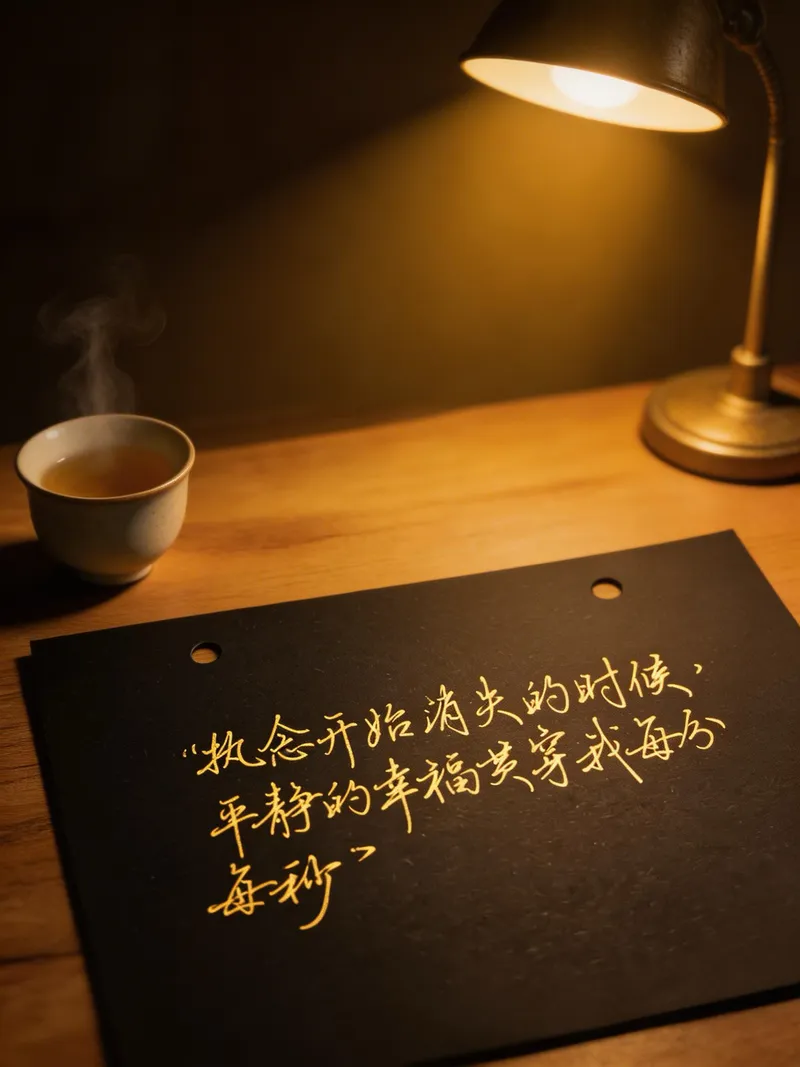 “执念开始消失的时候,
平静的幸福贯穿我每分
每秒”